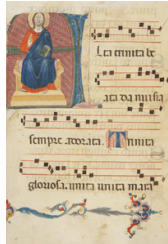 lta trinita be
ata da nui sia
sempre adorata. Trinita
gloriosa. unita unita mara